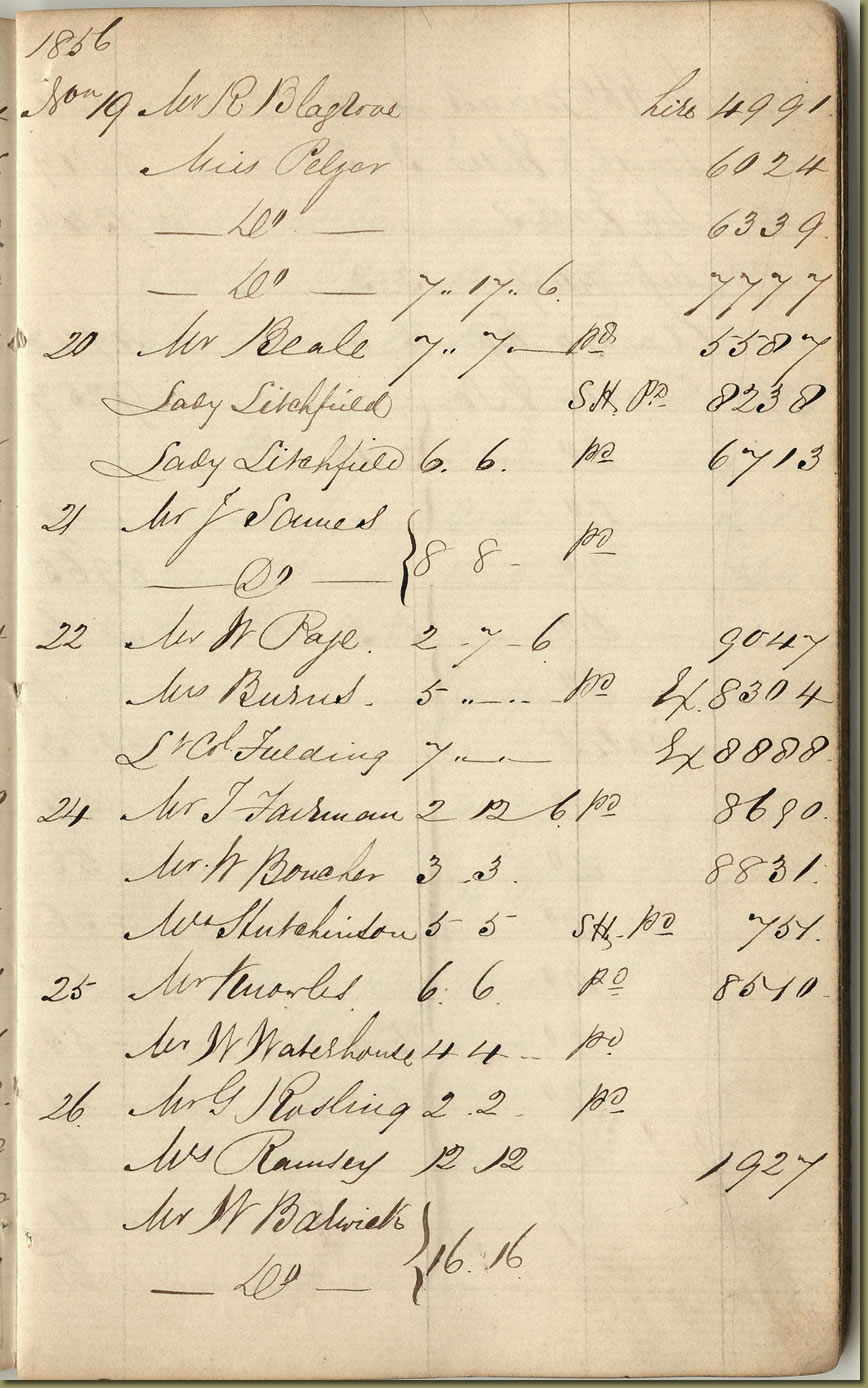 1856
Nov 19 Mr R Blagrove hire 4991.
Miss Pelzer 6024
— Do — 6339.
— Do — 7 " 17 " 6. 7777
20 Mr Beale 7 " 7 — pd 5587
Lady Litchfield SH, Pd 8238
Lady Litchfield 6. 6. pd 6713
21 Mr J
— Do — } 8 8 - pd
22 Mr W Page. 2 - 7 - 6 9047
Mrs Burns. 5 " — " — pd Ex. 8304
Lt Col Fielding 7 " — " — Ex 8888.
24 Mr T Fairman 2 12 6. pd 8690.
Mr. W Boucher 3 .3. 8831.
Mrs Hutchinson 5 5 SH, pd 751.
25 Mr Knowles 6. 6. pd 8510.
Mr W Waterhouse 4 4 - pd
26. Mr G Rosling 2 . 2. pd
Mrs Ramsey 12 .12 1927
Mr W
— Do — } 16. 16